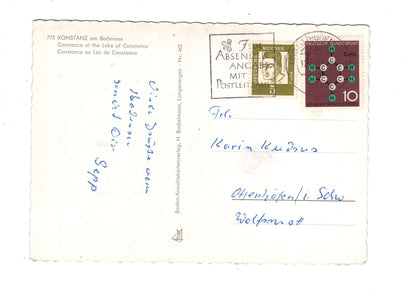 775 KONSTANZ am Bodensee
Constance at the Lake of Constance
Constance au Lac de Constance
Viele Grüße vom
Bodensee
sendet Dir
Sepp
Boden-Ansichtskartenverlag, H. Bockelmann, Langenargen · Nr. 462
ABSENDER
ANGABE
MIT
POSTLEITZ
5
DEUTSCHE BUNDESPOST
C₆H₆
10
Frl.
Karin
Ottenhöfen/i. Schw.
Wolfsmatt